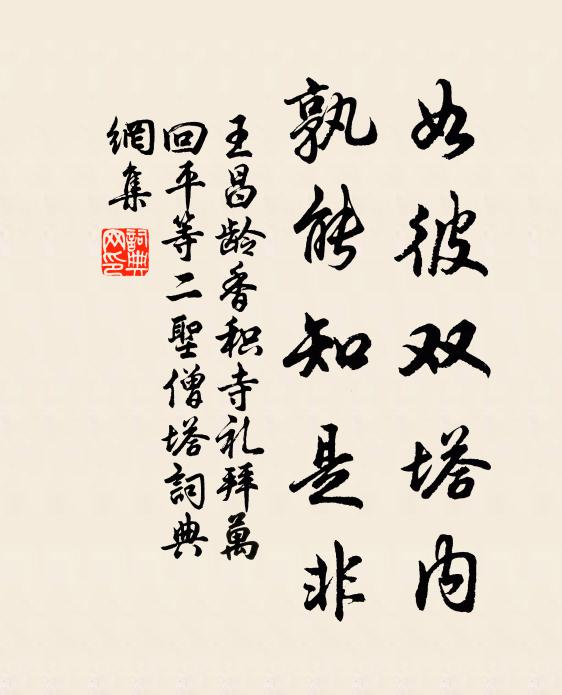 如彼双塔内
孰能知是非
王昌龄香积寺礼拜萬
回平等二聖僧塔詞典
網集
詞典網印